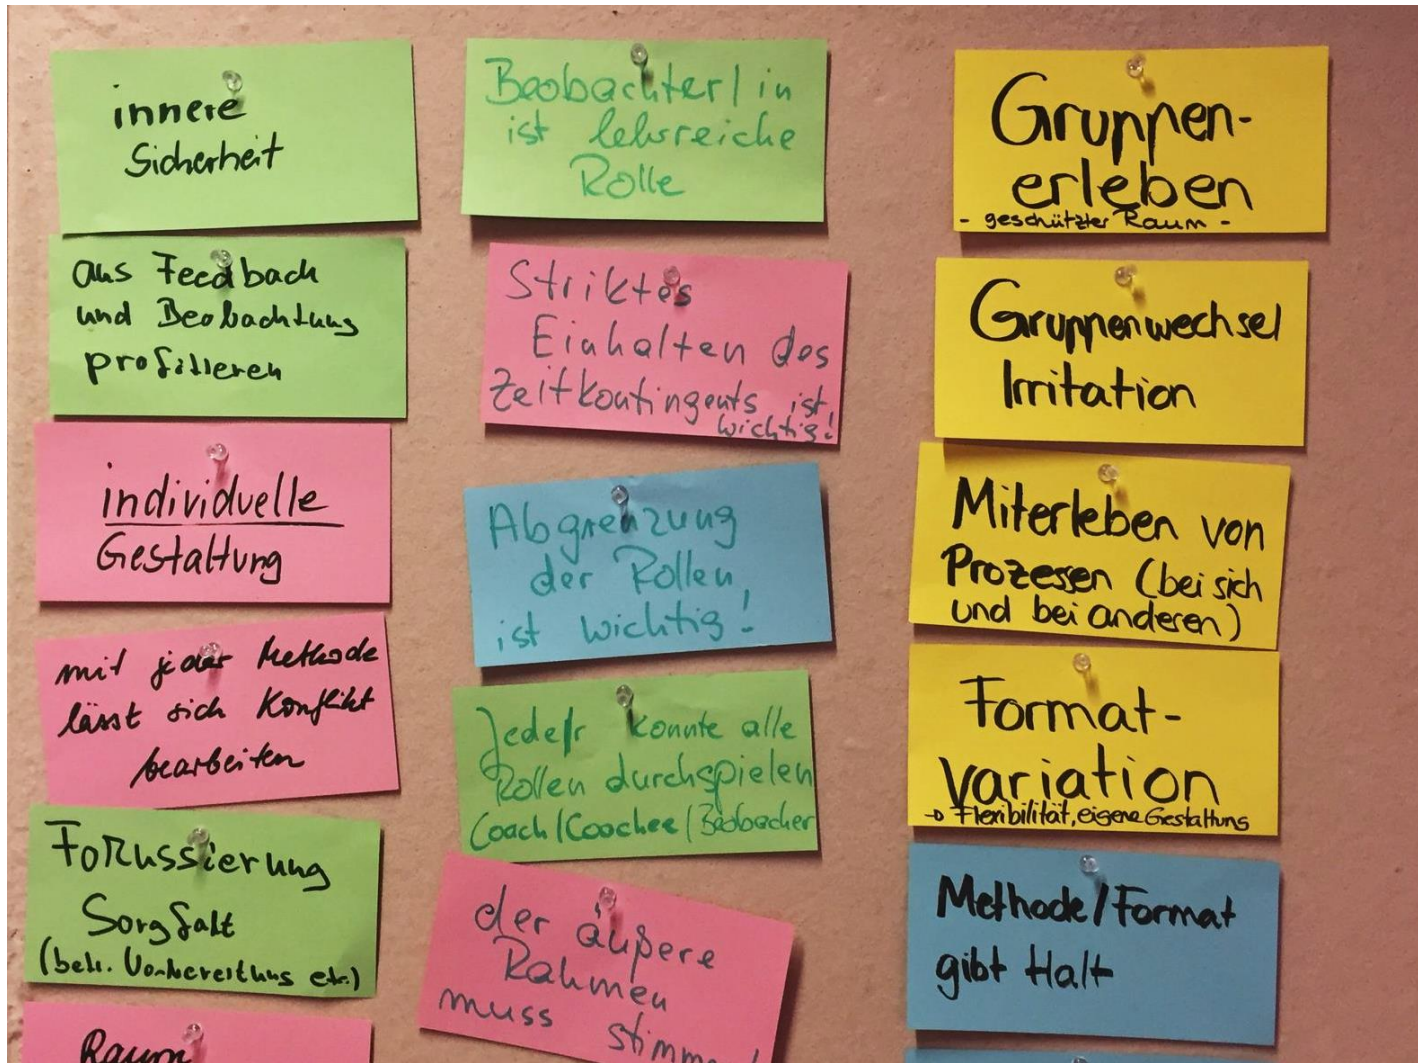 innere
Sicherheit
aus Feedback
und Beobachtung
profitieren
individuelle
Gestaltung
mit jeder Methode
lässt sich Konflikt
bearbeiten
Fokussierung
Sorgfalt
(betr. Vorbereitung etc.)
Raum
Beobachter/in
ist lehrreiche
Rolle
Striktes
Einhalten des
Zeitkontingents ist
wichtig!
Abgrenzung
der Rollen
ist wichtig!
Jede/r konnte alle
Rollen durchspielen
Coach/Coachee/Beobacher
der äußere
Rahmen
muss stimmen!
Gruppen-
erleben
- geschützter Raum -
Gruppenwechsel
Irritation
Miterleben von
Prozessen (bei sich
und bei anderen)
Format-
variation
→ Flexibilität, eigene Gestaltung
Methode/Format
gibt Halt